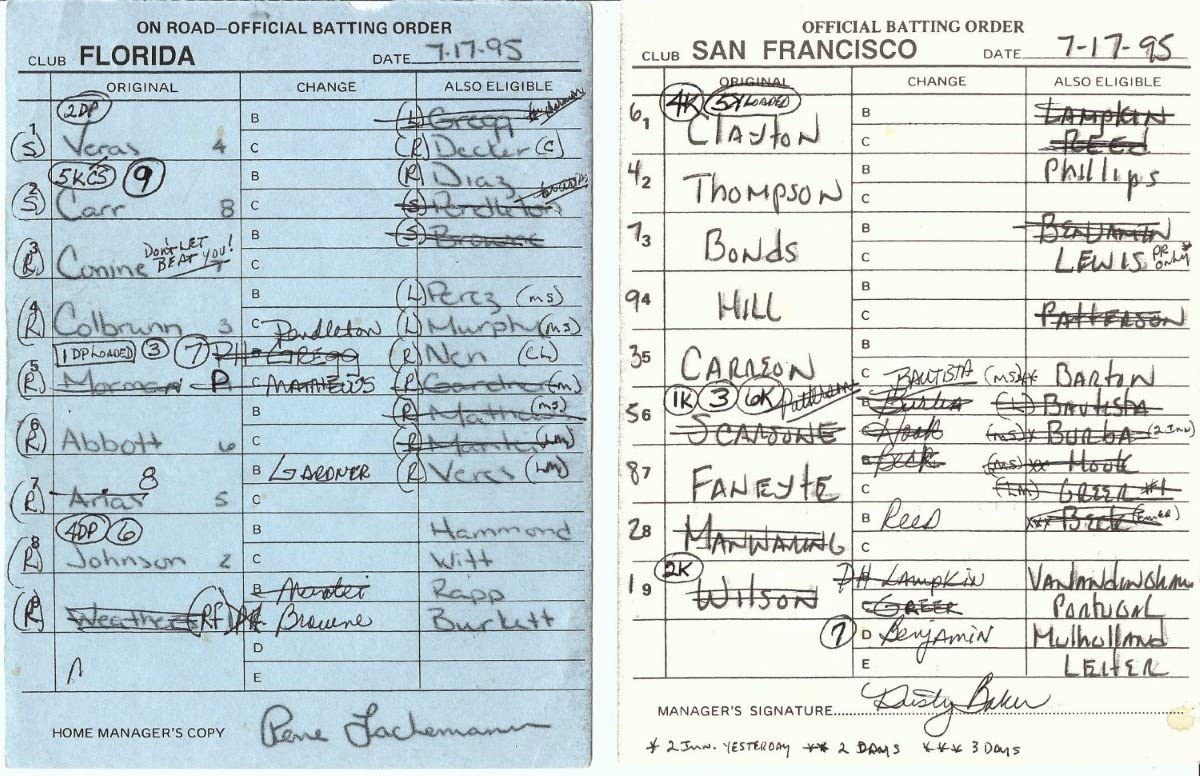 ON ROAD—OFFICIAL BATTING ORDER
CLUB FLORIDA DATE 7-17-95
ORIGINAL CHANGE ALSO ELIGIBLE
2DP
B (L) Gregg
1 (S) Veras 4 C (R) Decker (C)
5K CS 9 B (R) Diaz
2 (S) Carr 8 C (S) Pendleton
3 DON'T LET B (S) Browne
(R) Conine BEAT YOU! 7 C
B (L) Perez (MS)
4 (R) Colbrunn 3 C Pendleton (L) Murphy (MS)
1 DP LOADED 3 7 PH B GREGG (R) Nen (CL)
5 (R) Morman P C MATHEWS (R) Gardner (M)
B (R) Mathews (MS)
6 (R) Abbott 6 C (R) Mantei (LM)
8 B GARDNER (R) Veres (LM)
7 (R) Arias 5 C
4DP 6 B Hammond
8 (R) Johnson 2 C Witt
B Mantei Rapp
9 (R) Weathers RF PH C Browne Burkett
D
E
HOME MANAGER'S COPY Rene Lachemann
OFFICIAL BATTING ORDER
CLUB SAN FRANCISCO DATE 7-17-95
ORIGINAL CHANGE ALSO ELIGIBLE
4K 5K LOADED B LAMPKIN
6 1 CLAYTON C REED
B Phillips
4 2 THOMPSON C
B BENJAMIN
7 3 BONDS C LEWIS PR ONLY *
B
9 4 HILL C PATTERSON
B
3 5 CARREON C BAUTISTA (MS) ** BARTON
1K 3 6K Patterson B Burba (L) BAUTISTA
5 6 SCARSONE C Hook (MS) * BURBA (2 INN)
B Beck (MS) ** HOOK
8 7 FANEYTE C (LM) GREER *1
B Reed *** BECK
2 8 MANWARING C
2K PH B LAMPKIN VANLANDINGHAM
1 9 WILSON C GREER PORTUGAL
7 D Benjamin MULHOLLAND
E LEITER
MANAGER'S SIGNATURE Dusty Baker
* 2 INN. YESTERDAY ** 2 DAYS *** 3 DAYS